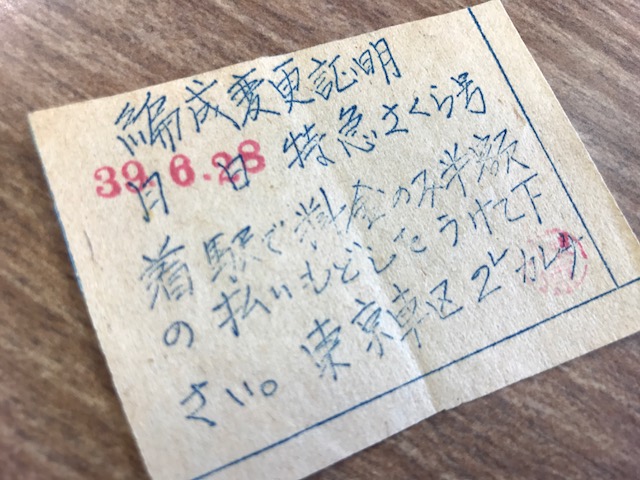 編成変更証明
39.6.28
月 日 特急さくら号
着駅で料金のみ半額
の払いもどしをうけて下
さい。東京車区 2レカレチ